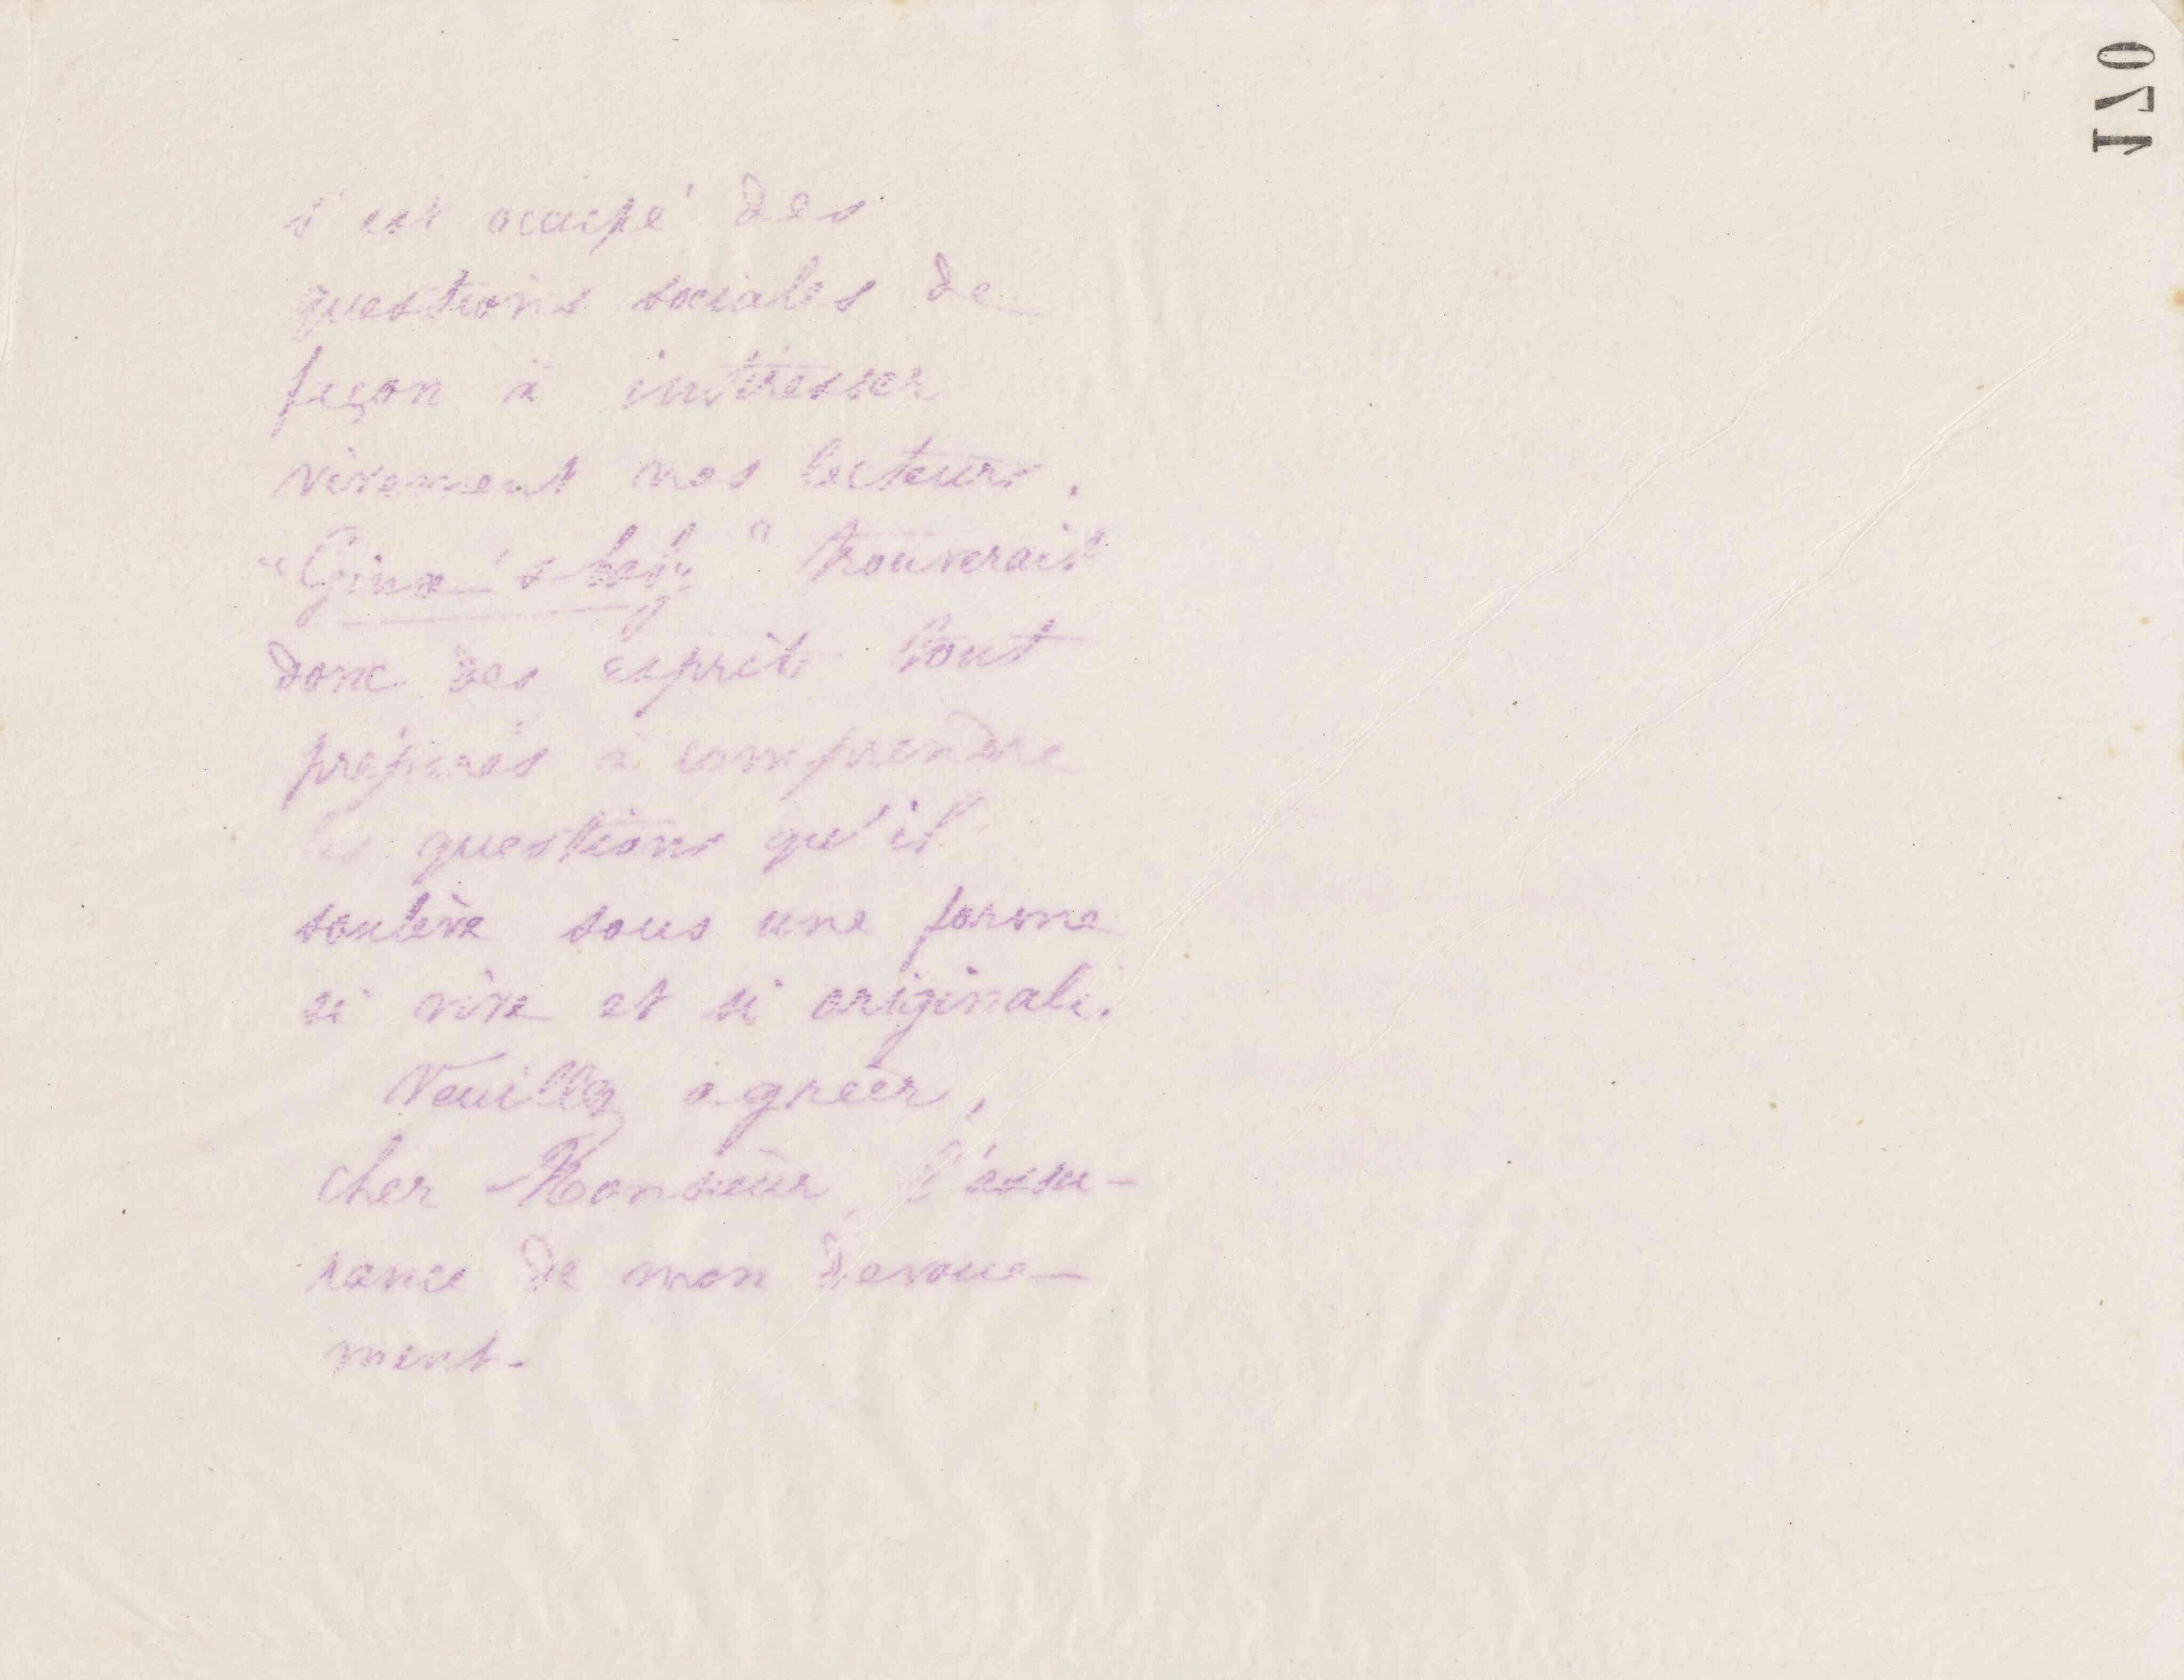 s'est occupé des
questions sociales de
façon à intéresser
vivement nos lecteurs.
"Ginx's baby" trouverait
donc des esprits tout
préparés à comprendre
les questions qu'il
soulève sous une forme
si vive et si originale.
Veuillez agréer,
cher Monsieur, l'assu-
rance de mon dévoue-
ment.
120